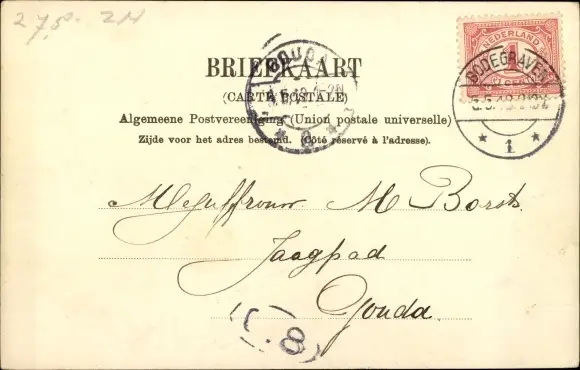 27,50. ZH
NEDERLAND
1
BODEGRAVEN
1
GOUDA
BRIEFKAART
(CARTE POSTALE)
Algemeene Postvereeniging (Union postale universelle)
Zijde voor het adres bestemd. (Côté réservé à l'adresse).
Mejuffrouw M Borst.
Jaagpad
Gouda.
8